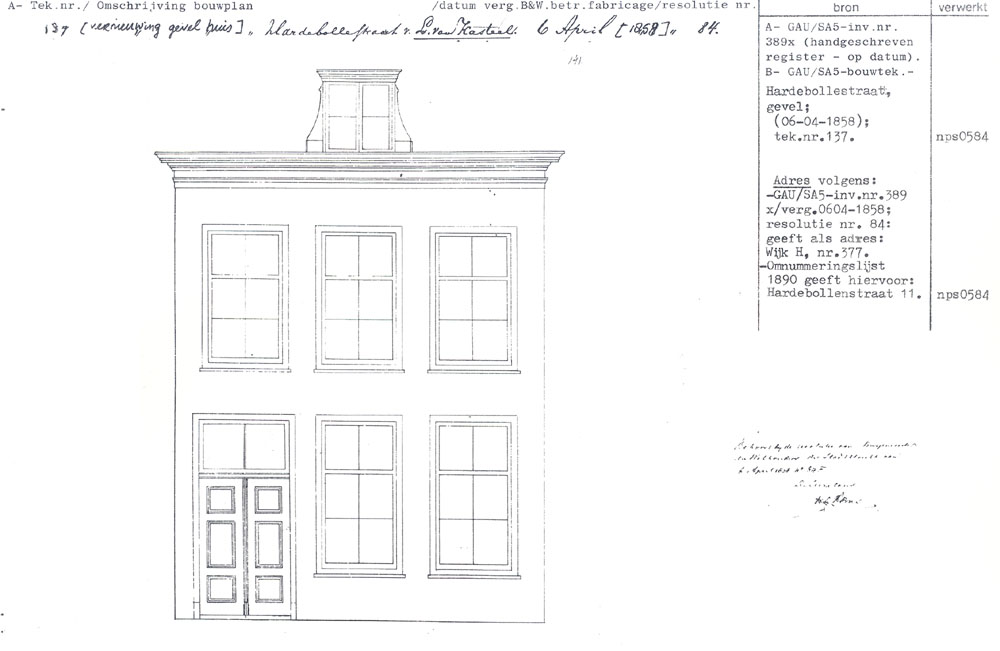 A- Tek.nr./ Omschrijving bouwplan /datum verg.B&W.betr.fabricage/resolutie nr.
137 [vernieuwing gevel huis] „ Hardebollestraat v. L. van Kasteel. 6 April [1858] „ 84.
141
bron
verwerkt
A- GAU/SA5-inv.nr.
389x (handgeschreven
register - op datum).
B- GAU/SA5-bouwtek.-
Hardebollestraat,
gevel;
(06-04-1858);
tek.nr.137.
nps0584
Adres volgens:
-GAU/SA5-inv.nr.389
x/verg.0604-1858;
resolutie nr. 84:
geeft als adres:
Wijk H, nr.377.
-Omnummeringslijst
1890 geeft hiervoor:
Hardebollenstraat 11.
nps0584
6 April